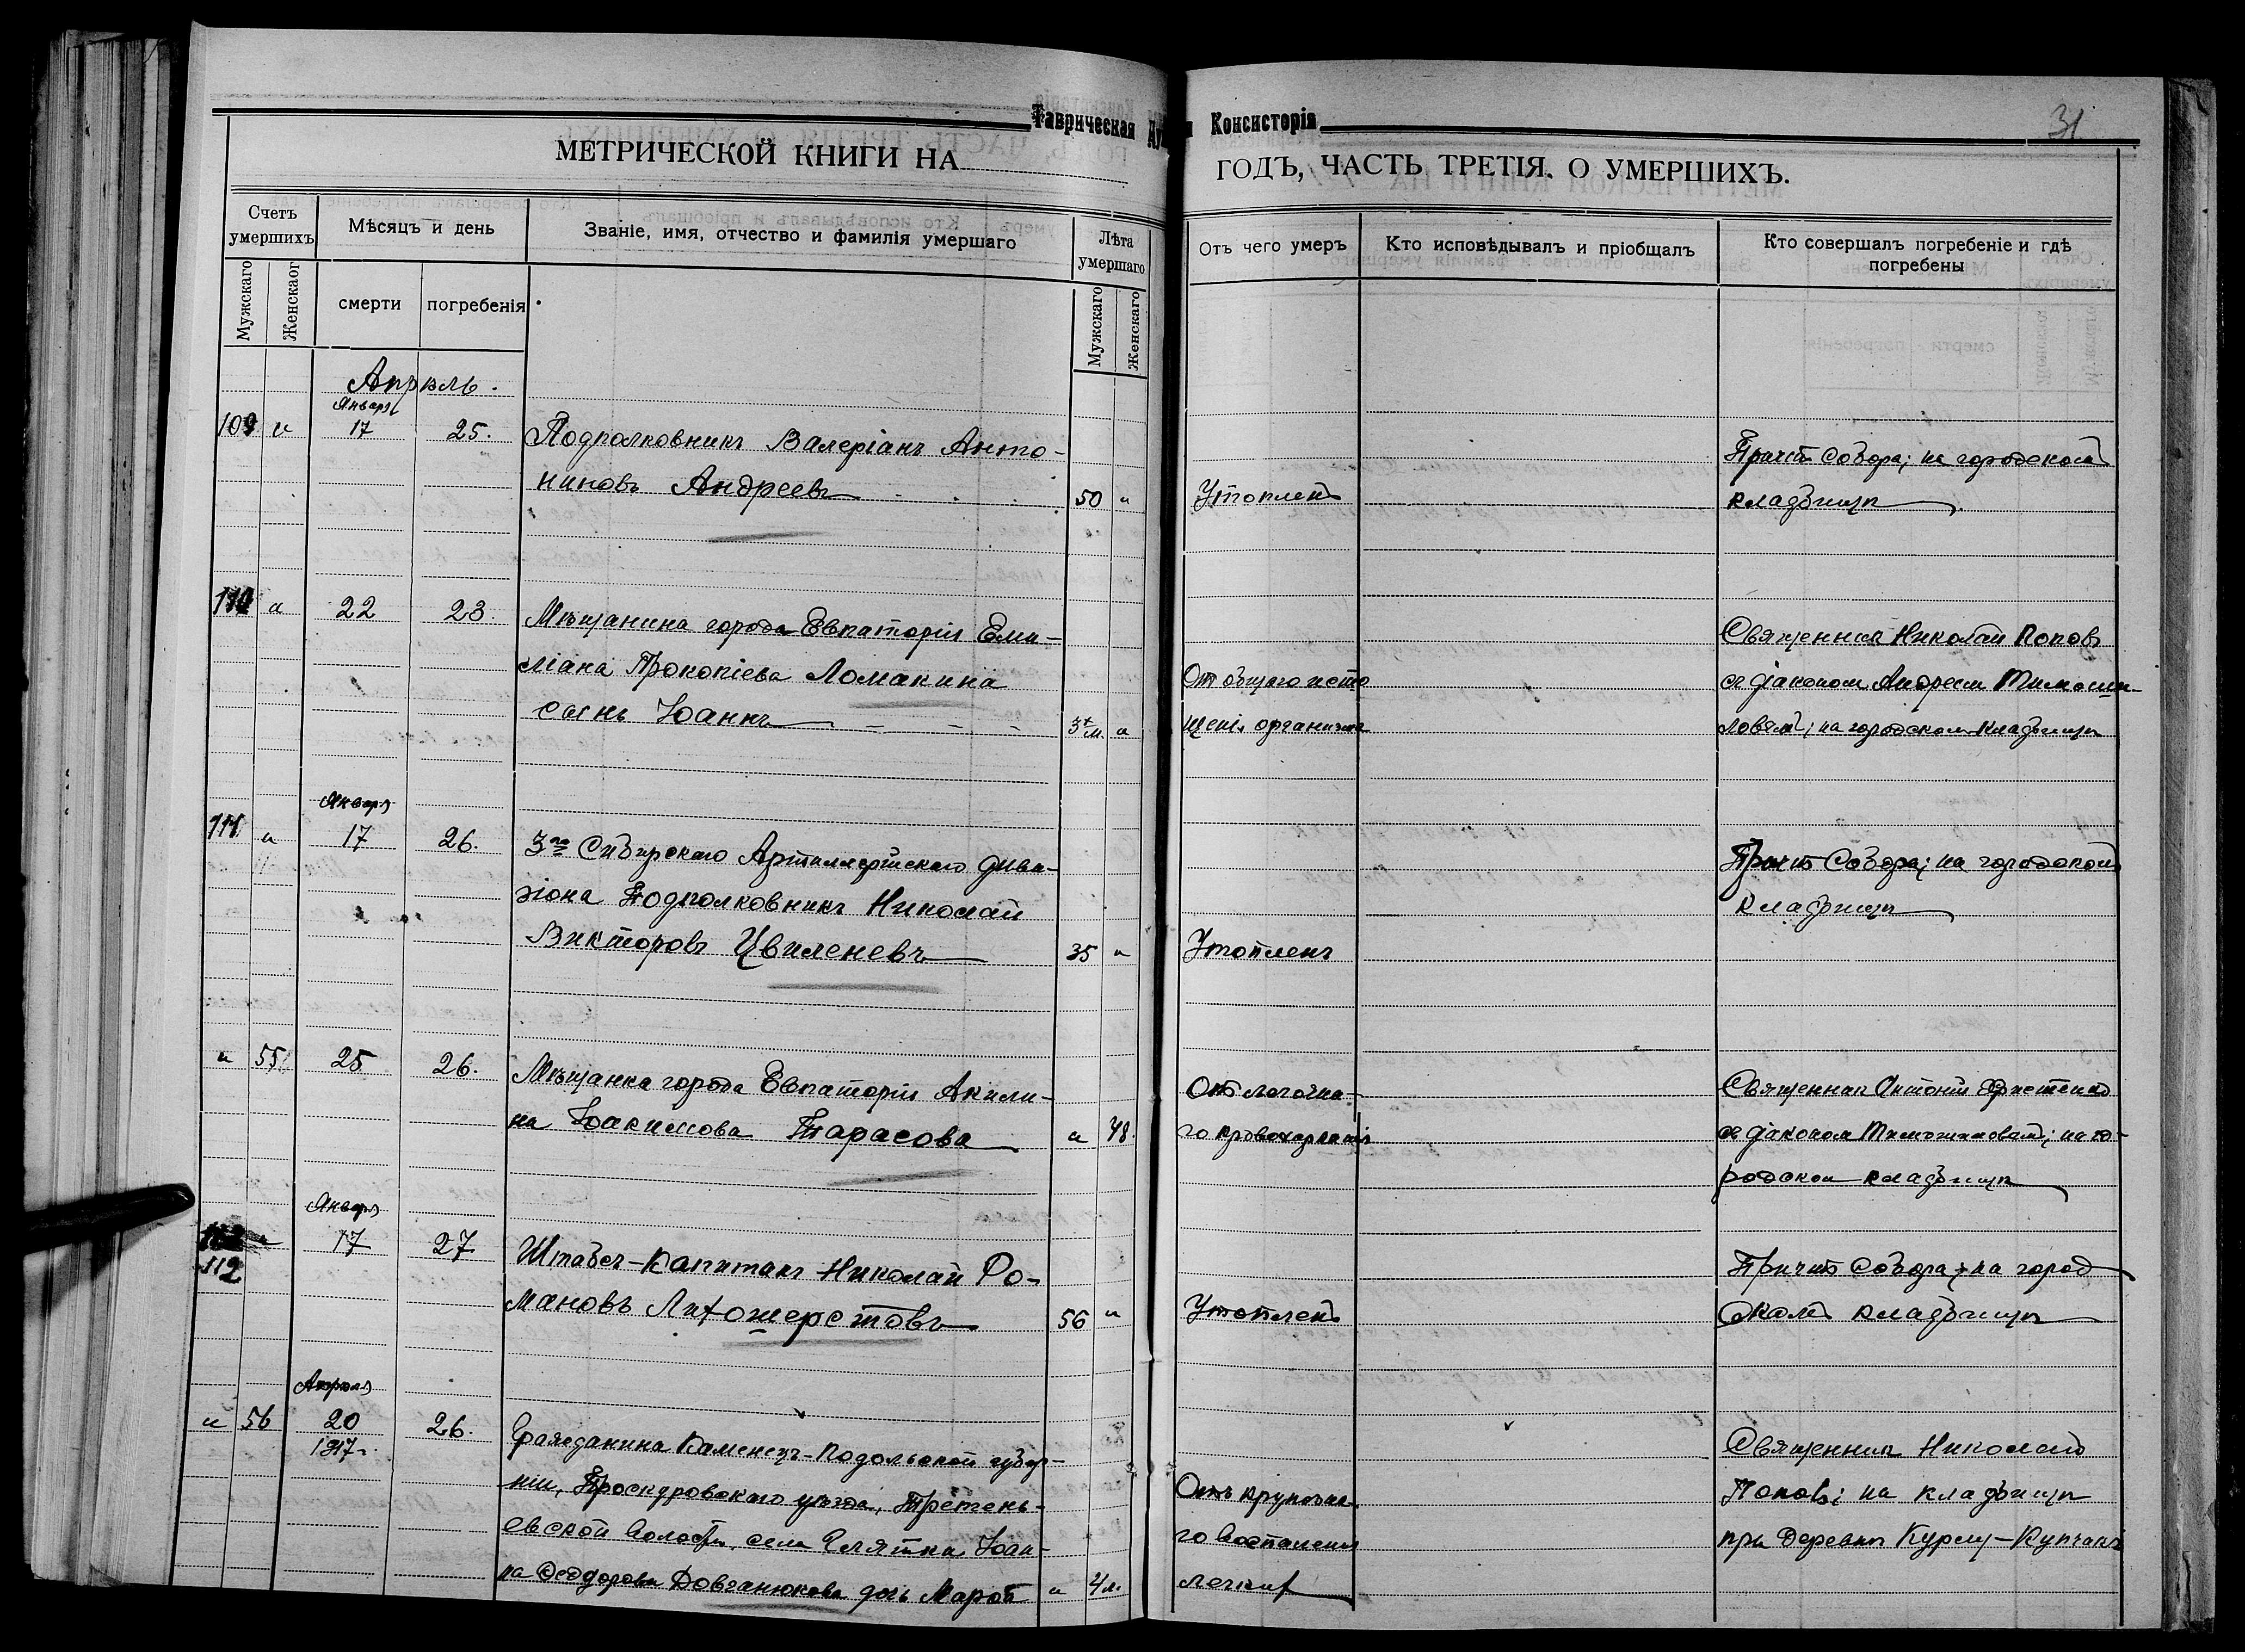 Таврическая Ду
МЕТРИЧЕСКОЙ КНИГИ НА
Счетъ умершихъ
Мужскаго
Женскаог
Мѣсяцъ и день
смерти
погребенія
Званіе, имя, отчество и фамилія умершаго
Лѣта умершаго
Мужскаго
Женскаго
Консисторія
31
ГОДЪ, ЧАСТЬ ТРЕТІЯ. О УМЕРШИХЪ.
Отъ чего умеръ
Кто исповѣдывалъ и пріобщалъ
Кто совершалъ погребеніе и гдѣ
погребены
Апрѣль.
Января
109 " 17 25. Подполковникъ Валеріанъ Анто-
ниновъ Андреевъ 50 "
Утопленъ
Причтъ Собора; на городскомъ
кладбищѣ
110 " 22 23. Мѣщанина города Евпаторіи Еми-
ліана Прокопіева Ломакина
сынъ Іоаннъ 3 м. "
Отъ общаго исто
щенія организма
Священникъ Николай Поповъ
съ діакономъ Андреемъ Тимоши-
ловымъ; на городскомъ кладбищѣ
Января
111 " 17 26. 3го Сибирскаго Артиллерійскаго диви-
зіона Подполковникъ Николай
Викторовъ Цвиленевъ 35 "
Утопленъ
Причтъ Собора; на городскомъ
кладбищѣ
" 55 25 26. Мѣщанка города Евпаторіи Акили-
на Іоакимова Тарасова " 48.
Отъ легочна-
го кровохарканія
Священникъ Антоній
съ діакономъ; на го-
родскомъ кладбищѣ
Января
112 17 27 Штабсъ-Капитанъ Николай Ро-
мановъ Лихошерстовъ 56 "
Утопленъ
Причтъ Собора; на город
скомъ кладбищѣ
Апрѣля
" 56 20 26. Гражданина Каменецъ-Подольской губер-
1917 г.
ніи, Проскуровскаго уѣзда,
евской волости, села Іоан-
на Ѳеодорова Довганюкова дочь " 4 л.
Отъ крупозна
го воспаленія
легкихъ
Священникъ Николай
Поповъ; на кладбищѣ
при деревнѣ Курлу-Кипчакъ